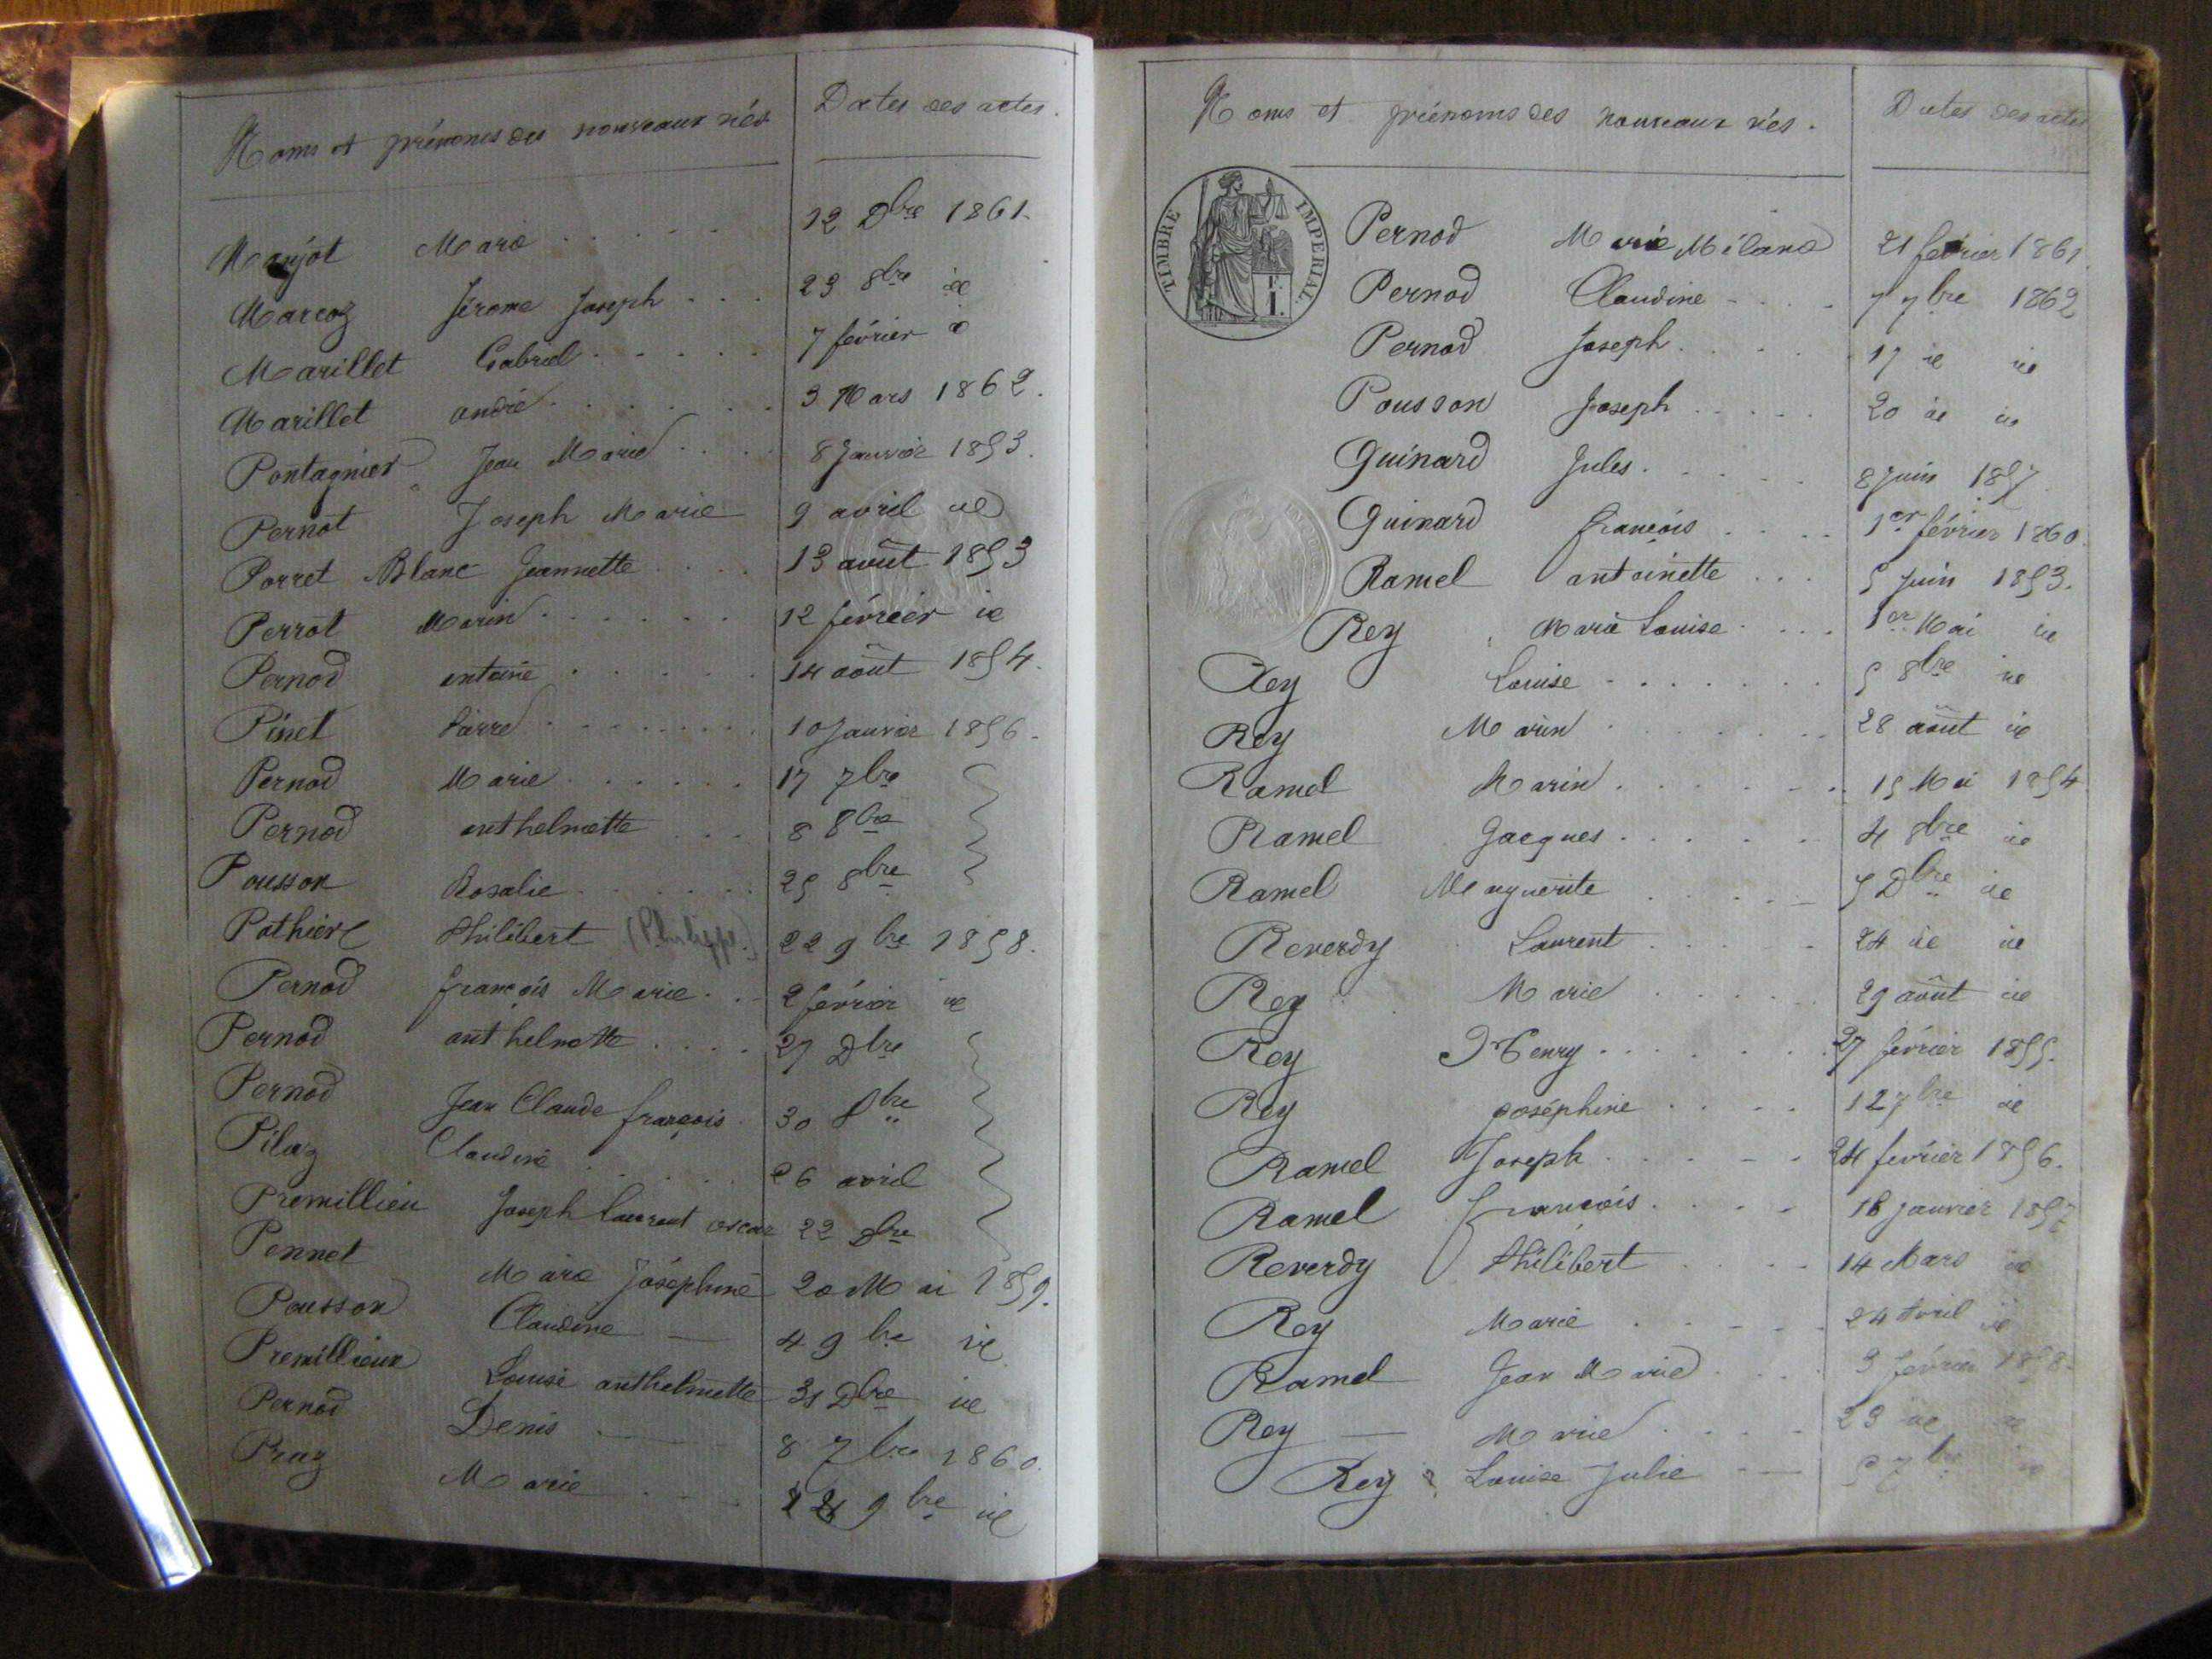 Noms et prénoms des nouveaux nés Dates des actes.
Manjot Marie 12 Dbre 1861.
Marcoz Jérome Joseph 23 8bre ie
Marillet Gabriel 7 février ie
Marillet andré 3 Mars 1862.
Pontagnier Jean Marie 8 Janvier 1853.
Pernot Joseph Marie 9 avril ie
Porret Blanc Jeannette 13 août 1853
Perrot Marin 12 février ie
Pernod antoine 14 août 1854.
Pinet Pierre 10 Janvier 1856.
Pernod Marie 17 7bre
Pernod anthelmette 8 8bre
Pousson Rosalie 25 8bre
Pothier Philibert (Philippe) 22 9bre 1858.
Pernod françois Marie 2 février ie
Pernod anthelmette 27 Dbre
Pernod Jean Claude françois 30 8bre
Pilaz Claudine 26 avril
Premillieu Joseph Laurent oscar 22 Dbre
Pennet Marie Joséphine 20 Mai 1859.
Pousson Claudine 4 9bre ie
Premillieux Louise anthelmette 31 Dbre ie
Pernod Denis 8 7bre 1860.
Praz Marie 9bre ie
Noms et prénoms des nouveaux nés. Dates des actes
TIMBRE IMPERIAL.
F. I.
Pernod Marie Mélanie 21 février 1861.
Pernod Claudine 7 7bre 1862
Pernod Joseph 17 ie ie
Pousson Joseph 20 ie ie
Guinard Jules 8 Juin 1857
Guinard françois 1er février 1860.
Ramel antoinette 5 Juin 1853.
Rey Marie Louise 1er Mai ie
Rey Louise 5 8bre ie
Rey Marin 28 août ie
Ramel Marin 15 Mai 1854
Ramel Jacques 4 8bre ie
Ramel Marguerite 5 Dbre ie
Reverdy Laurent 24 ie ie
Rey Marie 29 août ie
Rey Henry 27 février 1855.
Rey joséphine 12 7bre ie
Ramel Joseph 24 février 1856.
Ramel françois 18 janvier 1857
Reverdy Philibert 14 Mars ie
Rey Marie 24 Avril ie
Ramel Jean Marie 3 février 1858.
Rey Marie 23 ie ie
Rey Louise Julie 5 7bre ie